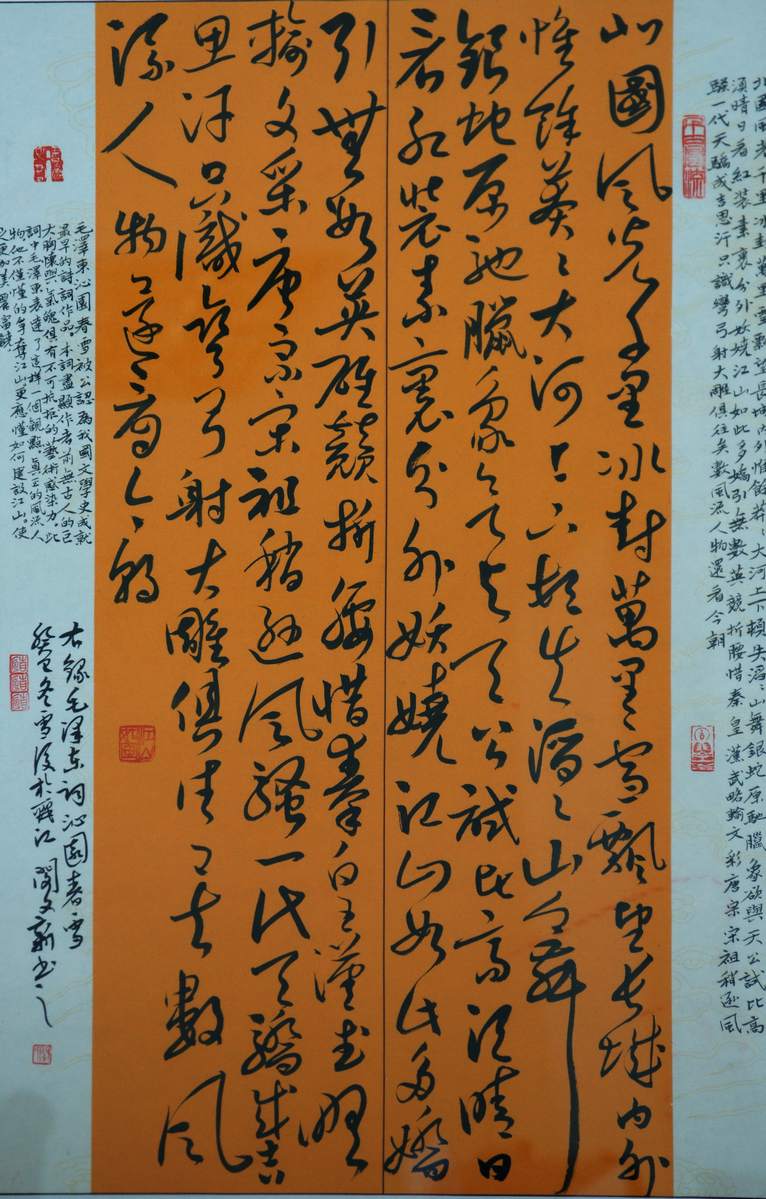 北國風光千里冰封萬里雪飄望長城內外惟餘莽々大河上下頓失滔々山舞銀蛇原馳臘象欲與天公試比高
須晴日看紅裝素裹分外妖嬈江山如此多嬌引無數英競折腰惜秦皇漢武略輸文彩唐宗宋祖稍遜風
騷一代天驕成吉思汗只識彎弓射大雕俱往矣數風流人物還看今朝
北國風光千里冰封萬里雪飄望長城內外
惟餘莽々大河上下頓失滔々山舞
銀蛇原馳臘象欲與天公試比高須晴日
看紅裝素裹分外妖嬈江山如此多嬌
引無數英雄競折腰惜秦皇漢武略
輸文采唐宗宋祖稍遜風騷一代天驕成吉
思汗只識彎弓射大雕俱往矣數風
流人物還看今朝
毛澤東沁園春雪被公認為我國文學史成就
最早的詩詞作品本詞盡顯作者前無古人的巨
大胸懷與氣魄但有不可抗拒的藝術感染力。此
詞中毛澤東表達了這樣一個觀點真正的風流人
物他不僅懂的爭奪江山更應懂如何建設江山。使
之更加美麗富饒
右錄毛澤東詞沁園春雪
癸巳冬雪後於麗江 文新書之